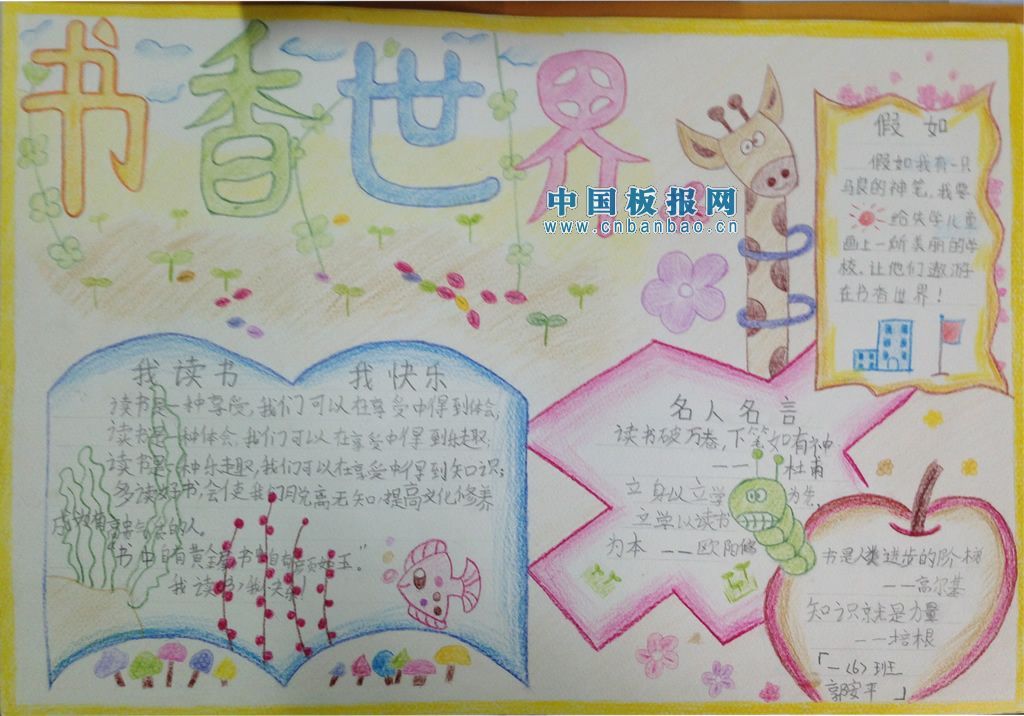 书香世界
中国板报网
www.cnbanbao.cn
假如
假如我有一只
马良的神笔,我要
给失学儿童
画上一所美丽的学
校,让他们遨游
在书香世界!
我读书 我快乐
读书是一种享受,我们可以在享受中得到体会;
读书是一种体会,我们可以在享受中得到乐趣;
读书是一种乐趣,我们可以在享受中得到知识;
多读好书,会使我们脱离无知,提高文化修养
的人。
书中自有黄金屋,书中自有颜如玉。"
我读书,我快乐!
名人名言
读书破万卷,下笔如有神
——杜甫
立身以立学为先,
立学以读书
为本 ——欧阳修
书是人类进步的阶梯
——高尔基
知识就是力量
——培根
「一(6)班
郭安平」